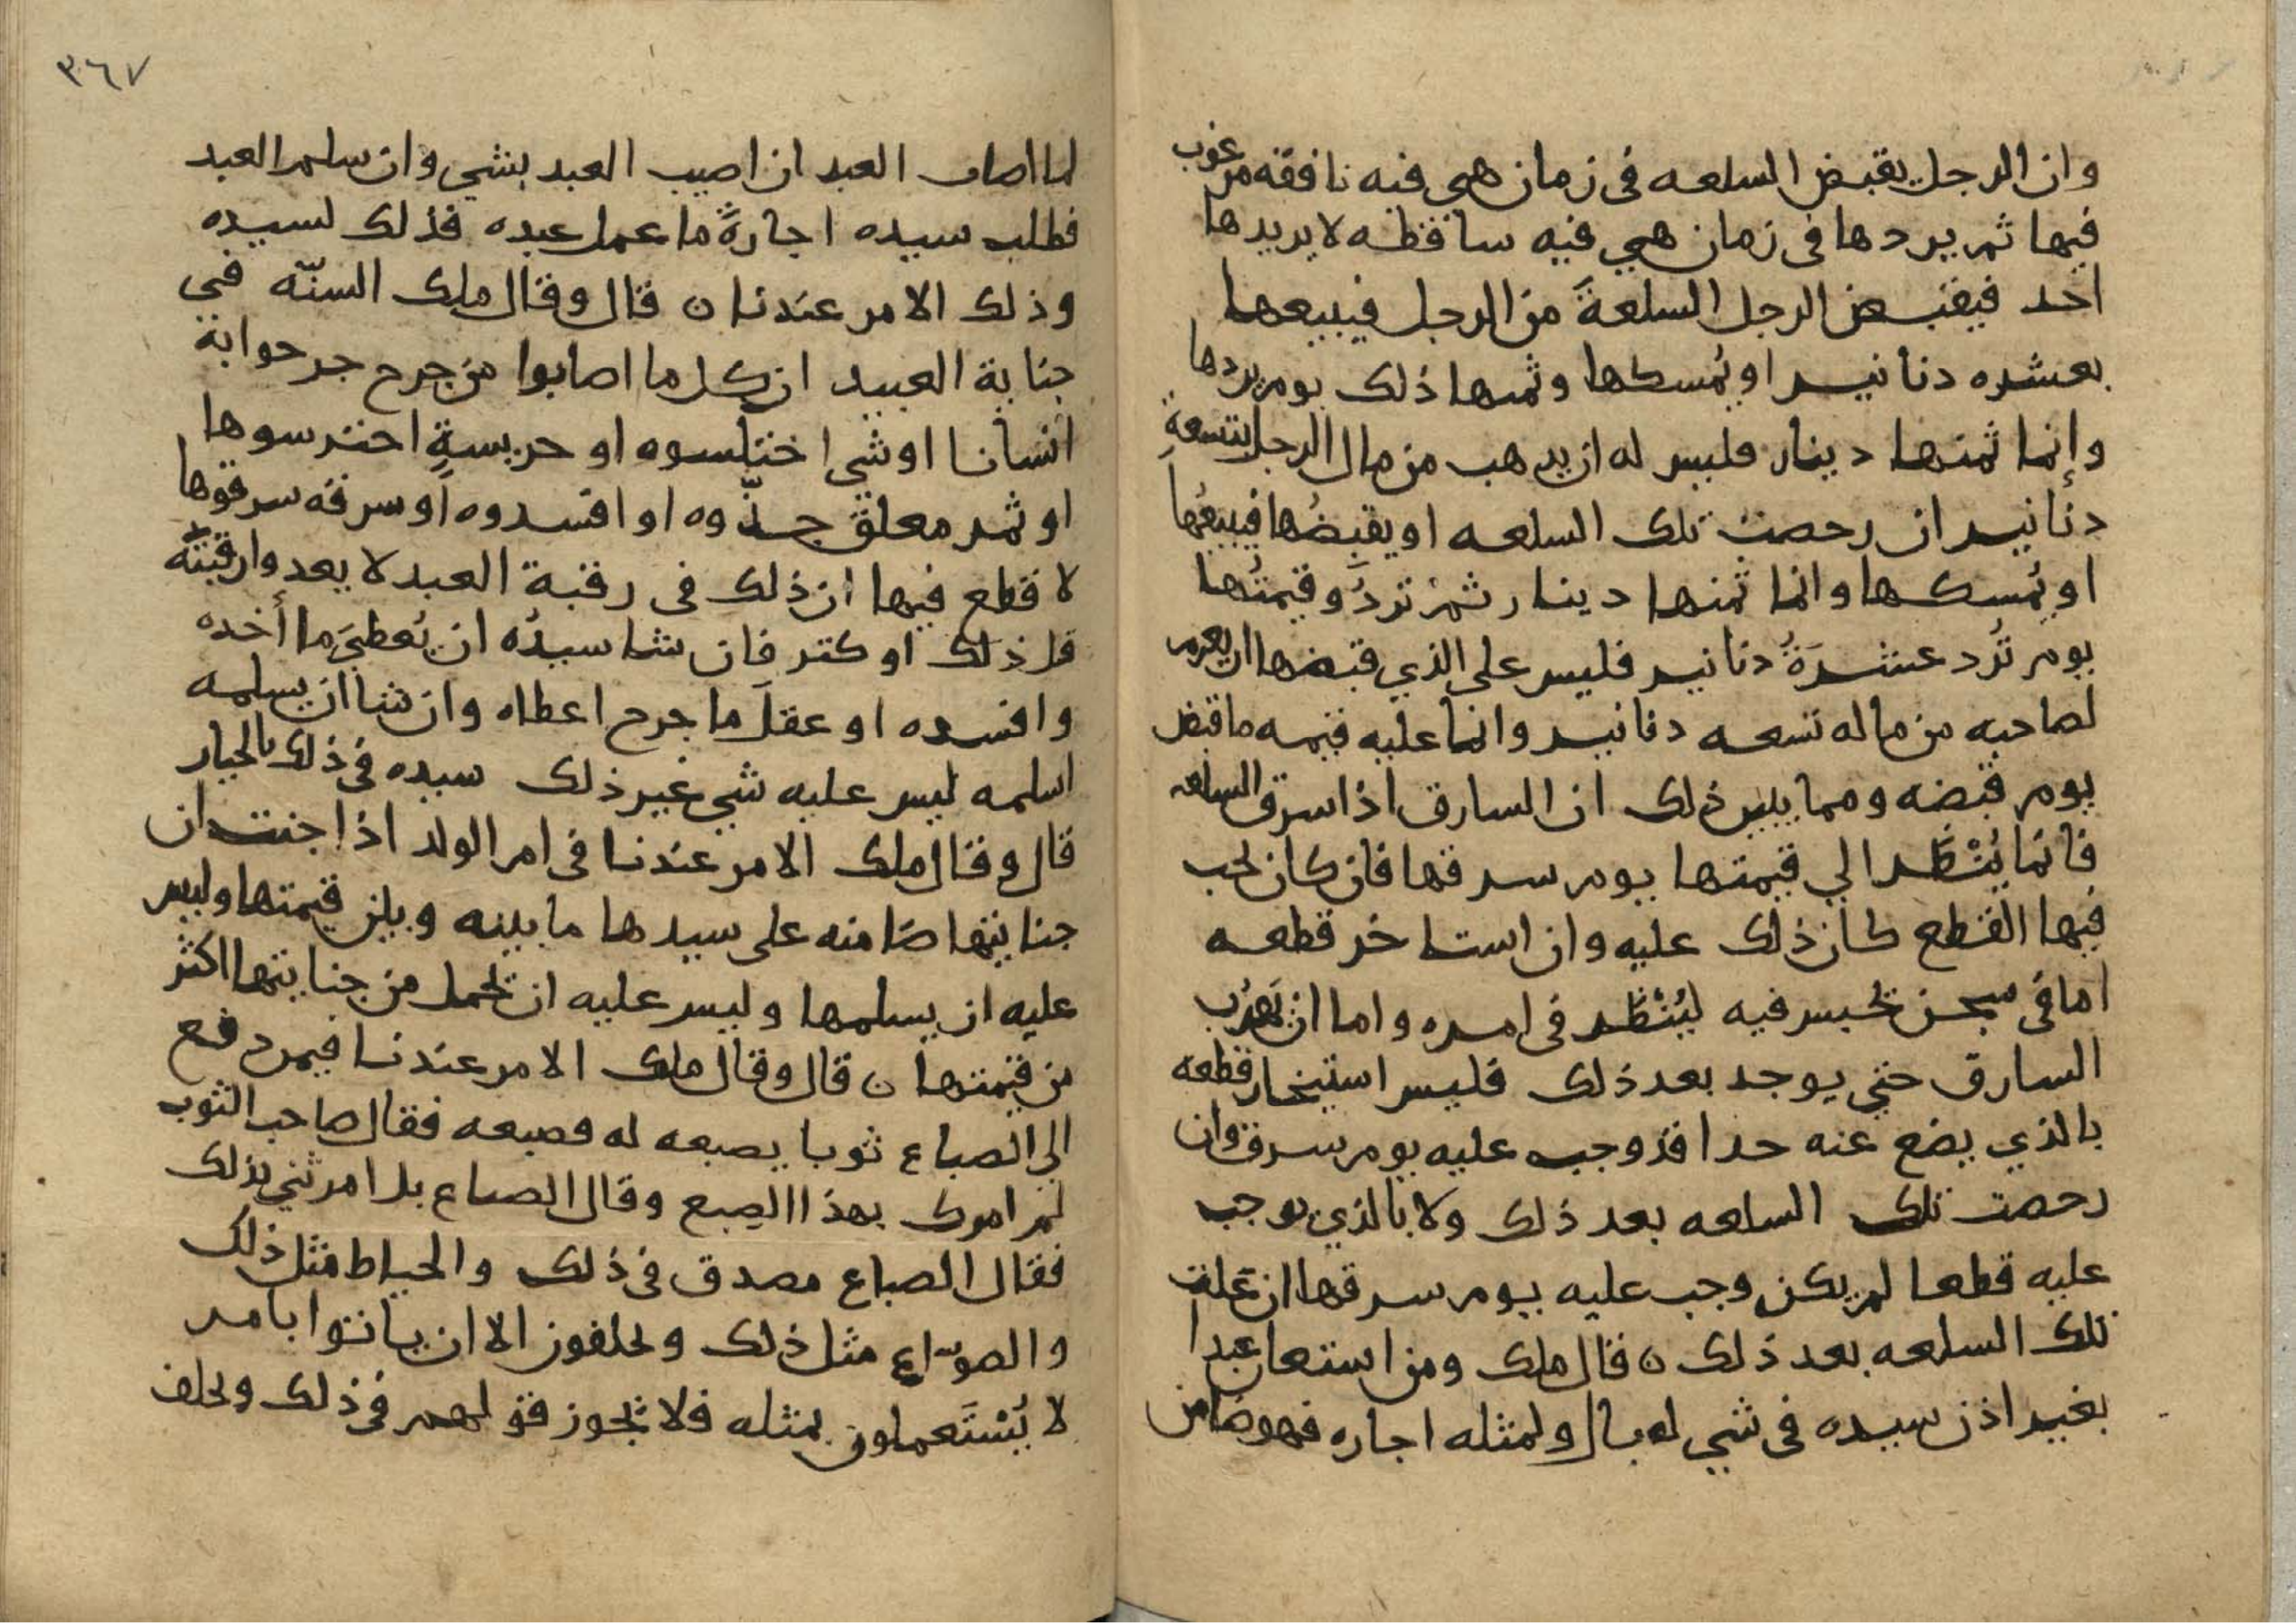 وان الرجل يقبض السلعه فى زمان هى فيه نافقه مرغوب
فيها ثم يردها فى زمان هي فيه ساقطه لا يريدها
احد فيقبض الرجل السلعةَ من الرجل فيبيعها
بعشره دنانير او يُمسكها وثمنها ذلك يوم يردها
وإنما ثمنها دينار فليس له ان يذهب من مال الرجل بتسعةِ
دنانير ان رخصت تلك السلعه او يقبضُها فيبيعُها
او يُمسكها وانما ثمنها دينار ثم تردُّ وقيمتُها
يوم تُرد عشرَةُ دنانير فليس على الذي قبضها ان يغرم
لصاحبه من ماله تسعه دنانير وانما عليه قيمه ما قبض
يوم قبضه ومما يبين ذلك ان السارق اذا سرق السلعه
فانما يُنْظَر الي قيمتها يوم سرقها فان كان يجب
فيها القطع كان ذلك عليه وان استاخر قطعه
اما فى سجن يحبس فيه ليُنْظَر فى امره واما ان يَهرُب
السارق حتي يوجد بعد ذلك فليس استيخار قطعه
بالذي يضع عنه حدا قد وجب عليه يوم سرق وان
رخصت تلك السلعه بعد ذلك ولا بالذي يوجب
عليه قطعا لم يكن وجب عليه يوم سرقها ان غلت
تلك السلعه بعد ذلك ن قال ملك ومن استعان عبدا
بغير اذن سيده فى شي له بال ولمثله اجاره فهو ضامن
٣٦٧
لما اصاب العبد ان اصيب العبد بشي وان سلم العبد
فطلب سيده اجارةً ما عمل عبده فذلك لسيده
وذلك الامر عندنا ن قال وقال ملك السنّه في
جناية العبيد ان كل ما اصابوا من جرح جرحوا به
انسانا او شي اختلسوه او حريسةٍ احترسوها
او ثمر معلق جذّوه او افسدوه او سرقه سرقوها
لا قطع فيها ان ذلك فى رقبة العبد لا يعدوا رقبتَه
قل ذلك او كثر فان شا سيدُه ان يُعطيَ ما أخده
وافسده او عقلَ ما جرح اعطاه وان شا ان يسلمه
اسلمه ليس عليه شي غير ذلك سيده فى ذلك بالخيار
قال وقال ملك الامر عندنا فى امر الولد اذا جنت ان
جنايتها ضامنه على سيدها ما بينه وبين قيمتها وليس
عليه ان يسلمها وليس عليه ان يحمل من جنايتها اكثر
من قيمتها ن قال وقال ملك الامر عندنا فيمن دفع
الي الصباع ثوبا يصبعه له فصبعه فقال صاحب الثوب
لم امرك بهذا الصِبع وقال الصباع بل امرتني بذلك
فقال الصباع مصدق فى ذلك والخياط مثل ذلك
والصوّاع مثل ذلك ويحلفون الا ان ياتوا بامر
لا يُسْتَعملون بمثله فلا يجوز قولهم فى ذلك ويحلف